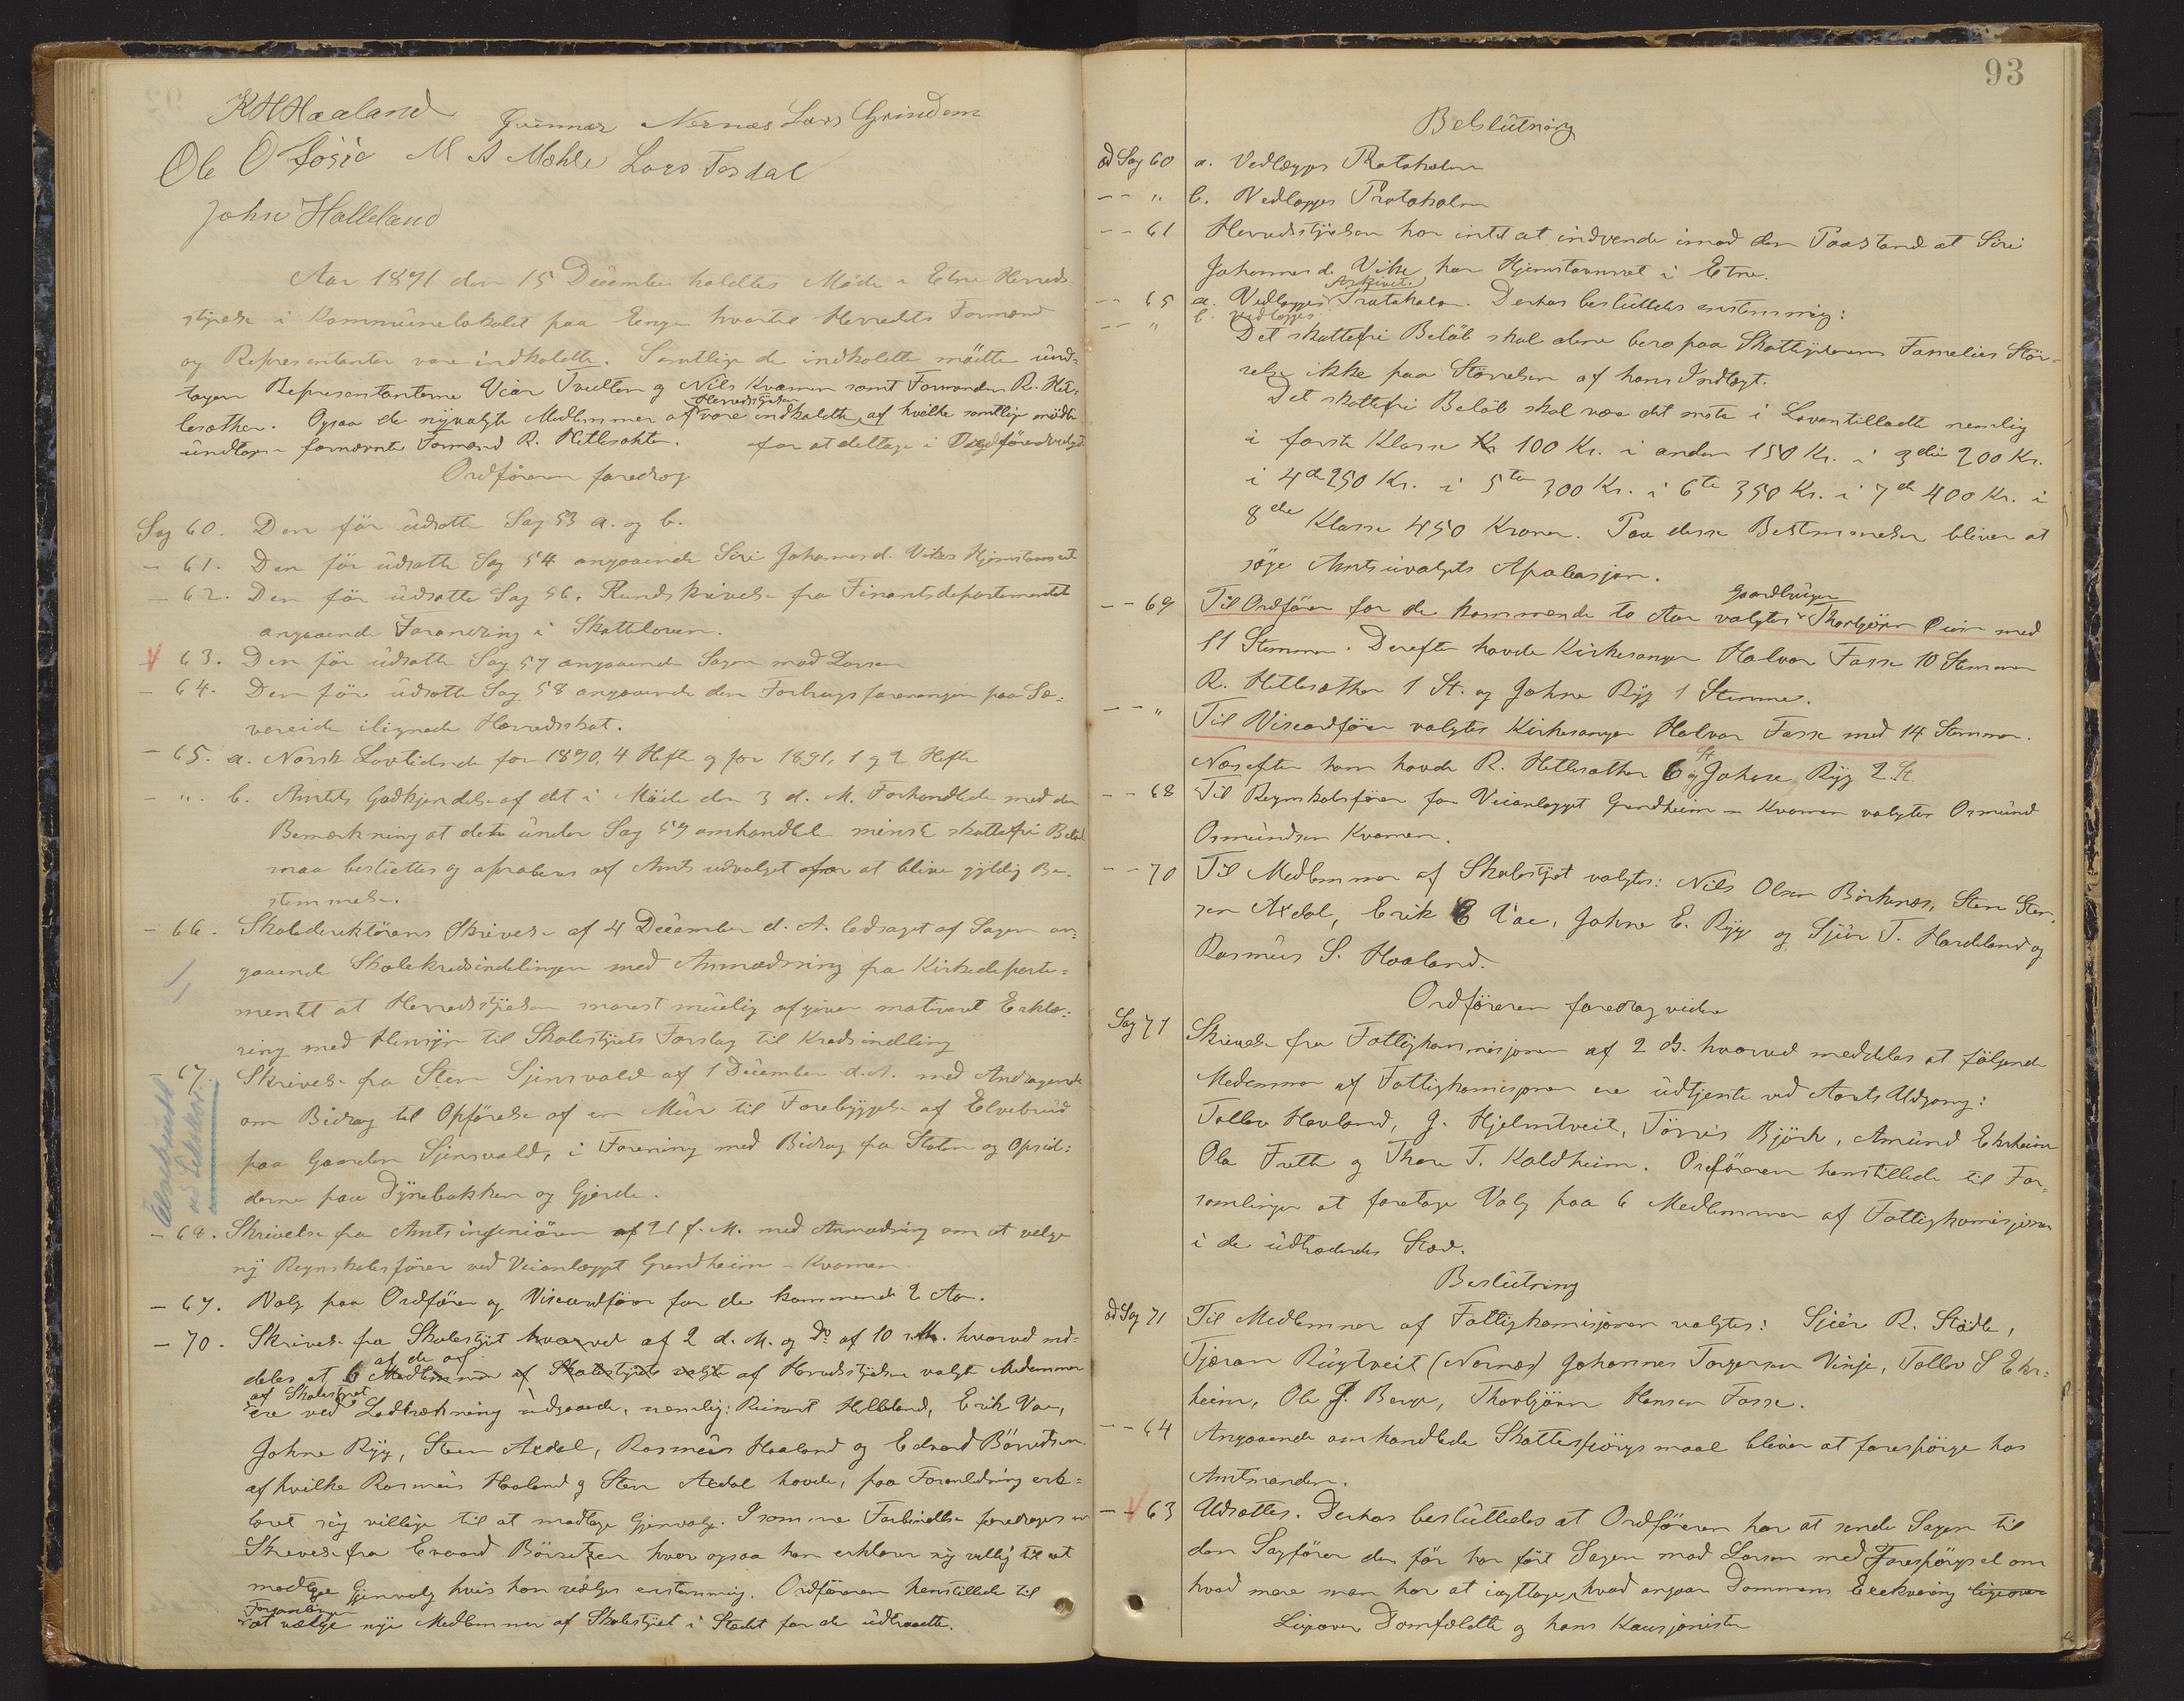 K H Haaland Gunnar Nernæs Lars Grindem
Ole O Fosse M A Mæhle Lars Tesdal
John Halleland
Aar 1891 den 15 Decembr holdtes Møde i Etne Herreds
styrelse i Kommunelokalet paa Enge hvortil Herredets Formænd
og Repræsentanter vare indkaldte. Samtlige de indkaldte mødte und-
tagen Repræsentanterne Viar Tveiten og Nils Kvamen samt Formanden R. Het-
lesæther. Ogsaa de nyvalgte Medlemmer af Herredsstyrelsen vare indkaldte af hvilke samtlige mødte
undtagen fornævnte Formand R. Hetlesæhter. for at deltage i Ordførervalget
Ordføreren foredrog
Sag 60. Den før udsatte Sag 53 a. og b.
- 61. Den før udsatte Sag 54 angaaende Siri Johannesd. Vikes Hjemstavnsret
- 62. Den før udsatte Sag 56. Rundskrivelse fra Finantsdepartementet
angaaende Forandring i Skatteloven.
V 63. Den før udsatte Sag 57 angaaende Sagen mod Larsen
- 64. Den før udsatte Sag 58 angaaende den Forbrugsforeningen paa Sæ-
vereide ilignede Herredsskat.
- 65. a. Norsk Lovtidende for 1890, 4 Hefte og for 1891, 1 og 2 Hefte
- ". b. Amtets Godkjendelse af det i Møde den 3 d. M. Forhandlede med den
Bemærkning at det under Sag 59 omhandlede minst skattefri Beløb
maa besluttes og aproberes af Amtsudvalget for at blive gyldig Be-
stemmelse.
- 66. Skoledirektørens Skrivelse af 4 December d. A. ledsaget af Sagen an-
gaaende Skolekredsindelingen med Anmodning fra Kirkedeparte-
mentet at Herredsstyrelsen snarest muelig afgiver motiveret Erklæ-
ring med Hensyn til Skolestyrets Forslag til Kredsindeling
- 67. Skrivelse fra Sten Sjensvald af 1 December d. A. med Andragende
om Bidrag til Opførelse af en Mur til Forebyggelse af Elvebrud
paa Gaarden Sjensvald, i Forening med Bidrag fra Staten og Opsid-
derne paa Dynebakken og Gjerde.
- 68. Skrivelse fra Amtsingeniøren af 21 f. M. med Anmodning om at velge
ny Regnskabsfører ved Veianlægget Grindheim - Kvamen
- 69. Valg paa Ordfører og Viseordfører for de kommende 2 Aar.
- 70. Skrivelse fra Skolestyret hvorved af 2 d. M. og Do af 10 s. M. hvorved med-
deles at 6 af de af Medlemmer af Skolestyret valgte af Herredsstyrelsen valgte Medlemmer
af Skolestyret
ere ved Lodtrækning udgaaede, nemlig: Reinert Helleland, Erik Vae,
Johne Ryg, Steen Axdal, Rasmus Haaland og Edvard Børretsen
af hvilke Rasmus Haaland og Sten Axdal havde, paa Foranledning erk-
læret sig villige til at modtage Gjenvalg. I samme Forbindelse foredroges en
Skrivelse fra Evaard Børretsen hvor ogsaa han erklærer sig villig til at
modtage Gjenvalg hvis han velges enstemmig. Ordføreren henstillede til
Forsamlingen
at vælge nye Medlemmer af Skolestyret i Stedet for de udtraadte.
93
Beslutning
ad Sag 60 a. Vedlægges Protokolen
- - " b. Vedlægges Protokolen
- - 61 Herredsstyrelsen har intet at indvende imod den Paastand at Siri
Johannesd. Vike har Hjemstavnsret i Etne.
- - 65 a. Vedlægges Arkivet. Protokolen. Derhos besluttedes enstemmig:
- - " b. vedlægges
Det skattefri Beløb skal alene bero paa Skatteyderens Families Stør-
relse ikke paa Størrelsen af hans Indtægt.
Det skattefri Beløb skal være det mste i Loven tilladte nemlig
i første Klasse Kr 100 Kr. i anden 150 Kr. i 3die 200 Kr.
i 4de 250 Kr. i 5te 300 Kr. i 6te 350 Kr. i 7de 400 Kr. i
8de Klasse 450 Kroner. Paa disse Bestemmelser bliver at
søge Amtsuvalgets Aprobasjon.
- - 69 Til Ordfører for de kommende to Aar valgtes Gaardbruger Thorbjørn Øien med
11 Stemmer. Derefter havde Kirkesanger Halvor Fasse 10 Stemmer
R. Hetlesæther 1 St. og Johne Ryg 1 Stemme.
- - " Til Viseordfører valgtes Kirkesanger Halvor Fasse med 14 Stemmer.
Næsefter ham havde R. Hetlesæther 6 St og Johne Ryg 2 St.
- - 68 Til Regnskabsfører for Veianlægget Grindheim - Kvamen valgtes Osmund
Osmundsen Kvamen.
- - 70 Til Medlemmer af Skolestyret valgtes: Nils Olsen Børkenæs, Sten Sten-
sen Axdal, Erik E Vae, Johne E. Ryg og Sjur T. Hardeland og
Rasmus S. Haaland.
Ordføreren foredrog videre
Sag 71 Skrivelse fra Fattigkommisjonen af 2 ds. hvorved meddeles at følgende
Medemmer af Fattigkomisjonen ere udtjente ved Aarets Udgang:
Tollev Havland, G. Hjelmtveit, Tørris Bjørk, Amund Ekrheim
Ola Frette og Thore T. Kaldheim. Ordføreren henstillede til For-
samlingen at foretage Valg paa 6 Medlemmer af Fattigkomisjonen
i de udtrædendes Sted.
Beslutning
ad Sag 71 Til Medlemmer af Fattigkomisjonen valgtes: Sjur R. Stødle,
Tjæran Rygtveit (Nernæs) Johannes Torgersen Vinje, Tollev S Ekr-
heim, Ole J. Berge, Thorbjørn Hansen Fosse.
- - 64 Angaaende omhandlede Skattespørgsmaal bliver at forespørge hos
Amtmanden.
- V 63 Udsættes. Derhos besluttedes at Ordføreren har at sende Sagen til
den Sagfører der før har ført Sagen mod Larsen med Forespørgsel om
hvad mere man har at iagttage, hvad angaar Dommens Exekvering ligeover
Ligeover Domfældte og hans Kausjonister